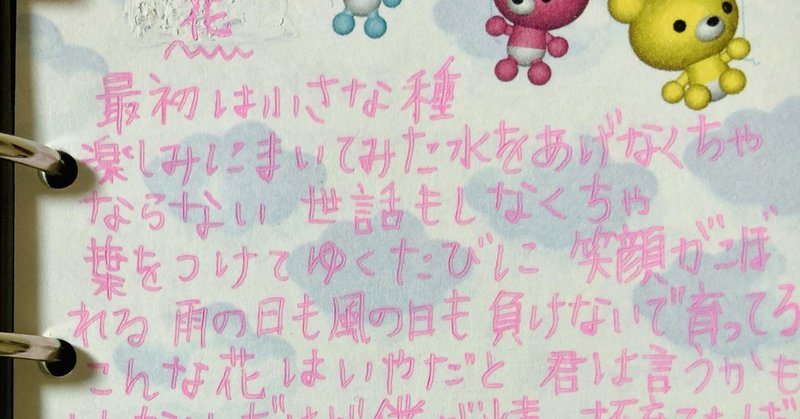 花
最初は小さな種
楽しみにまいてみた水をあげなくちゃ
ならない 世話もしなくちゃ
葉をつけてゆくたびに 笑顔がこぼ
れる 雨の日も風の日も 負けないで育ってる
こんな花はいやだと 君は言うかも